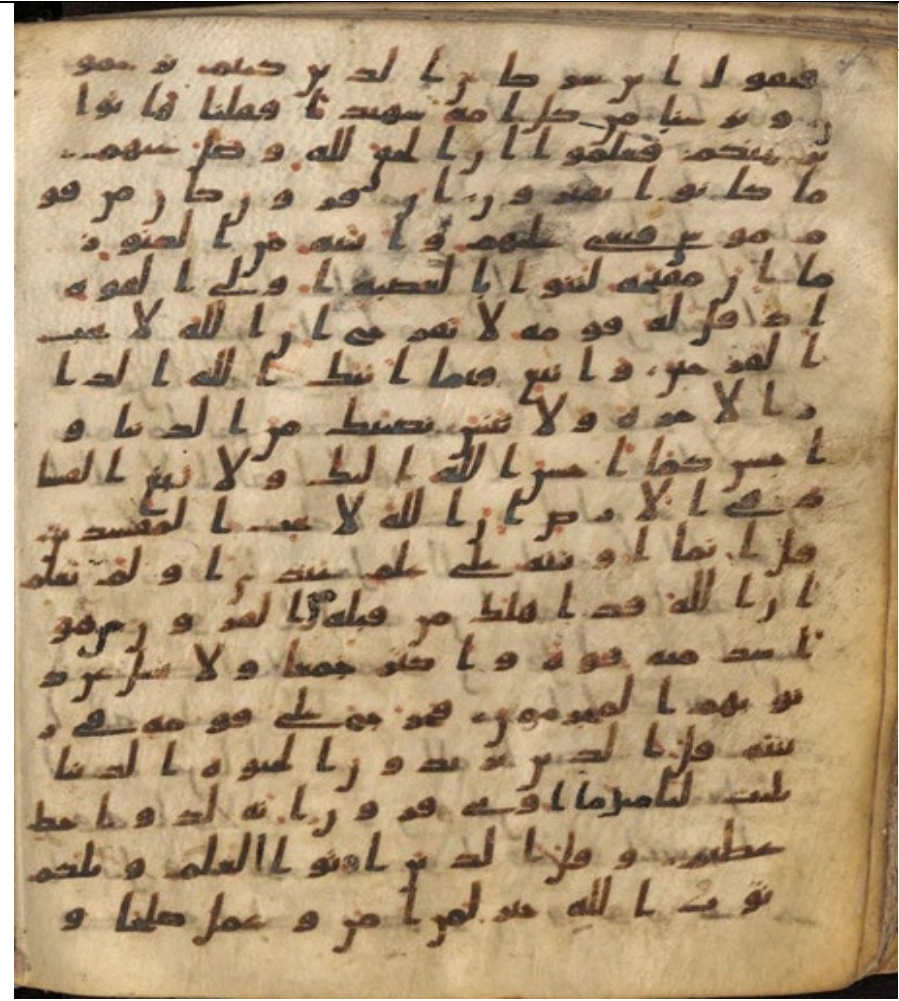 فيقول اين شركاي الذين كنتم تزعمو
ن ونزعنا من كل امة شهيدا فقلنا هاتوا
برهنكم فعلموا ان الحق لله وضل عنهم
ما كانوا يفترون ان قرون كان من قو
م موسى فبغى عليهم واتينه من الكنوز
ما ان مفتحه لتنوا بالعصبة اولي القوة
اذ قل له قومه لا تفرح ان الله لا يحب
الفرحين وابتغ فيما اتيك الله الدا
ر الاخرة ولا تنس نصيبك من الدنيا و
احسن كما احسن الله اليك ولا تبغ الفسا
د في الارض ان الله لا يحب المفسدين
قل انما اوتيته على علم عندي اولم يعلم
ان الله قد اهلك من قبله من القرون من هو
اشد منه قوة واكثر جمعا ولا يسل عن ذ
نوبهم المجرمون فخرج على قومه في ز
ينته قل الذين يريدون الحيوة الدنيا
يليت لنا مثل ما اوتي قرون انه لذو حظ
عظيم وقل الذين اوتوا العلم ويلكم
ثوب الله خير لمن امن وعمل صلحا و